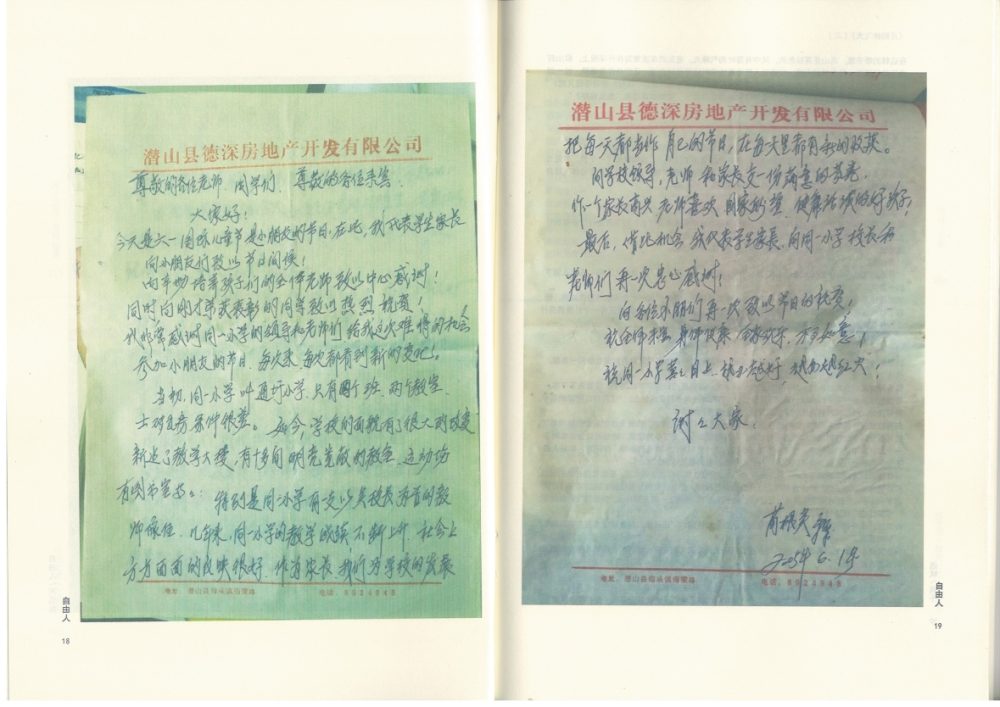 潜山县德深房地产开发有限公司
尊敬的各位老师、同学们、尊敬的各位来宾
大家好！
今天是六一国际儿童节是小朋友的节日，在此，我代表学生家长
向小朋友们致以节日问候！
向辛勤培养孩子们的全体老师致以中心感谢！
同时向刚才荣获表彰的同学致以热烈祝贺！
我非常感谢同一小学的领导和老师们给我这次难得的机会
参加小朋友的节日、每次来、每次都看到新的变化。
当初，同一小学叫通圩小学、只有两个班、两个教室
条件很差。如今，学校的面貌有了很大的改变
新造了教学大楼，有十多间明亮宽敞的教室、运动场
有图书室等。特别是同一小学有一支以吴校长为首的教
师队伍、几年来，同一小学的教学成绩不断上升、社会上
方方面面的反映很好、作为家长，我们为学校的发展
地址：潜山县梅城镇南
电话：8924948
自由人
18
潜山县德深房地产开发有限公司
把每天都当作自己的节日，在每天里都有新的收获。
向学校领导、老师和家长交一份满意的答卷
作一个家长高兴、老师喜欢、国家的、健康活泼的好孩子！
最后，借此机会，我代表学生家长，向同一小学校长和
老师们再一次衷心感谢！
向各位小朋们再一次致以节日的祝贺！
祝全体来宾、身体健康、合家欢乐、万事如意！
祝同一小学蒸蒸日上、越办越好、越办越红火！
谢谢大家.
2005年6.1号
电话：8924948
自由人
19